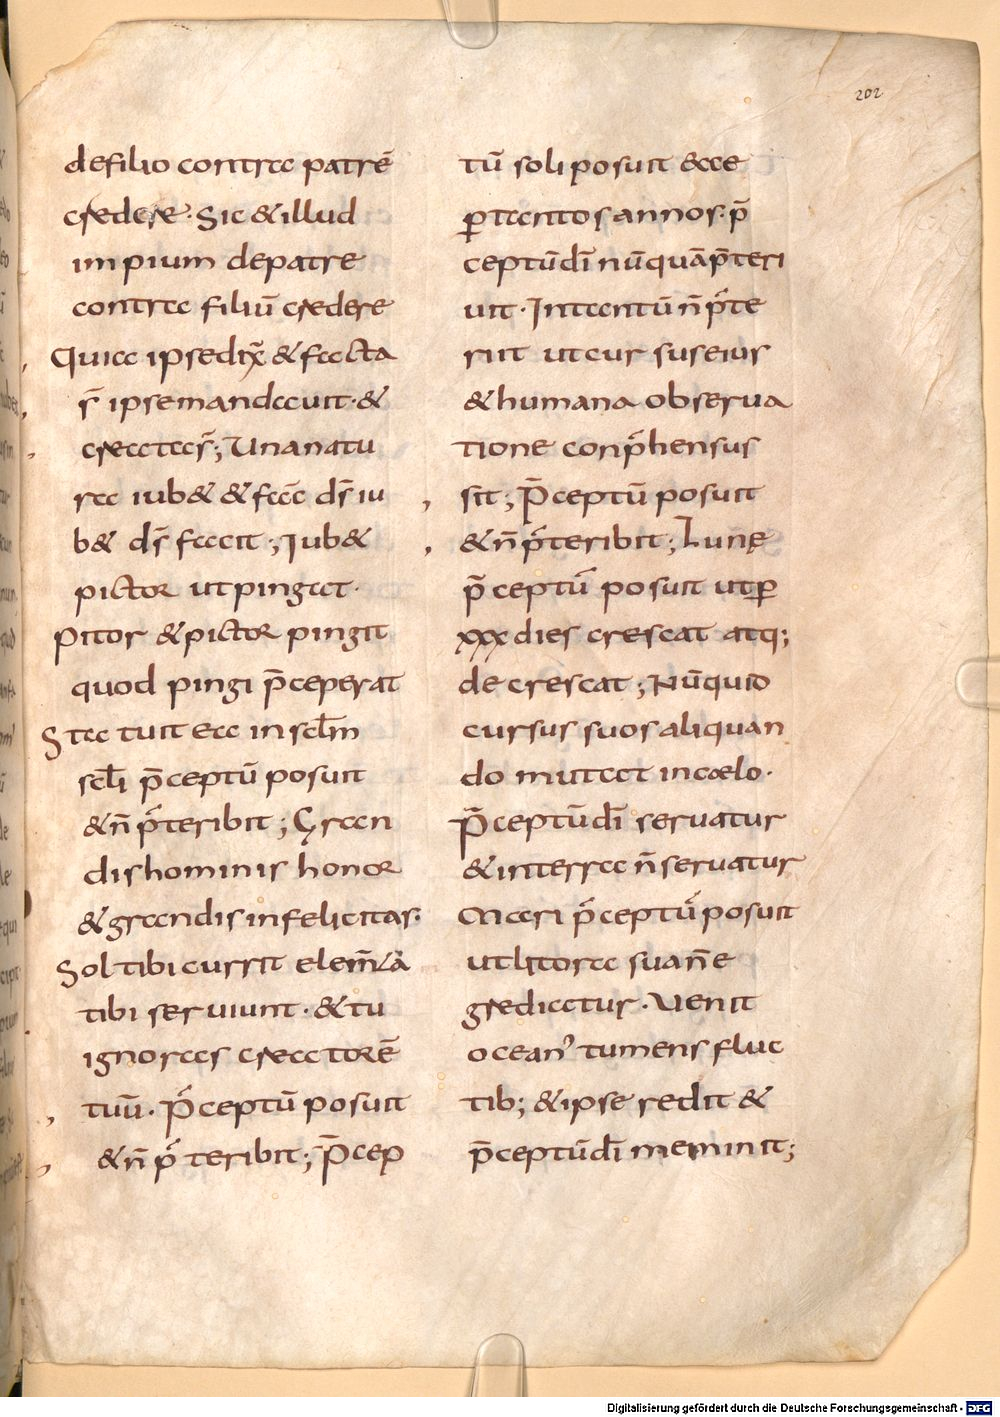 202
de filio contra patrē
credere. Sic & illud
impium de patre
contra filiū credere
Quia ipse dix̄ & facta
s̄ ipse mandauit. &
creata s̄; Una natu
ra iub& & facē ds̄ iu
b& ds̄ facit; Iub&
pictor ut pingat.
Pitor & pictor pingit
quod pingi p̄ceperat
Statuit ea in sclm̄
scl̄i p̄ceptū posuit
& n̄ p̄teribit; Gran
dis hominis honor
& grandis infelicitas.
Sol tibi currit elem̄ta
tibi seruiunt. & tu
ignoras creatorē
tuū. P̄ceptū posuit
& n̄ p̄teribit; P̄cep
tū soli posuit & ecce
ꝑ tantos annos. p̄
ceptū dī nūquā p̄teri
uit. In tantū n̄ p̄te
riit ut cursus eius
& humana obserua
tione conp̄hensus
sit; P̄ceptū posuit
& n̄ p̄teribit; Lunę
p̄ceptū posuit ut ꝑ
xxx dies crescat atq;
decrescat; Nūquid
cursus suos aliquan
do mutat in cælo.
P̄ceptū dī seruatur
& in terra n̄ seruatur
Mari p̄ceptū posuit
ut litora sua n̄ e
grediatur. Venit
ocean' tumens fluc
tib; & ipse redit &
p̄ceptū dī meminit;
Digitalisierung gefördert durch die Deutsche Forschungsgemeinschaft - DFG